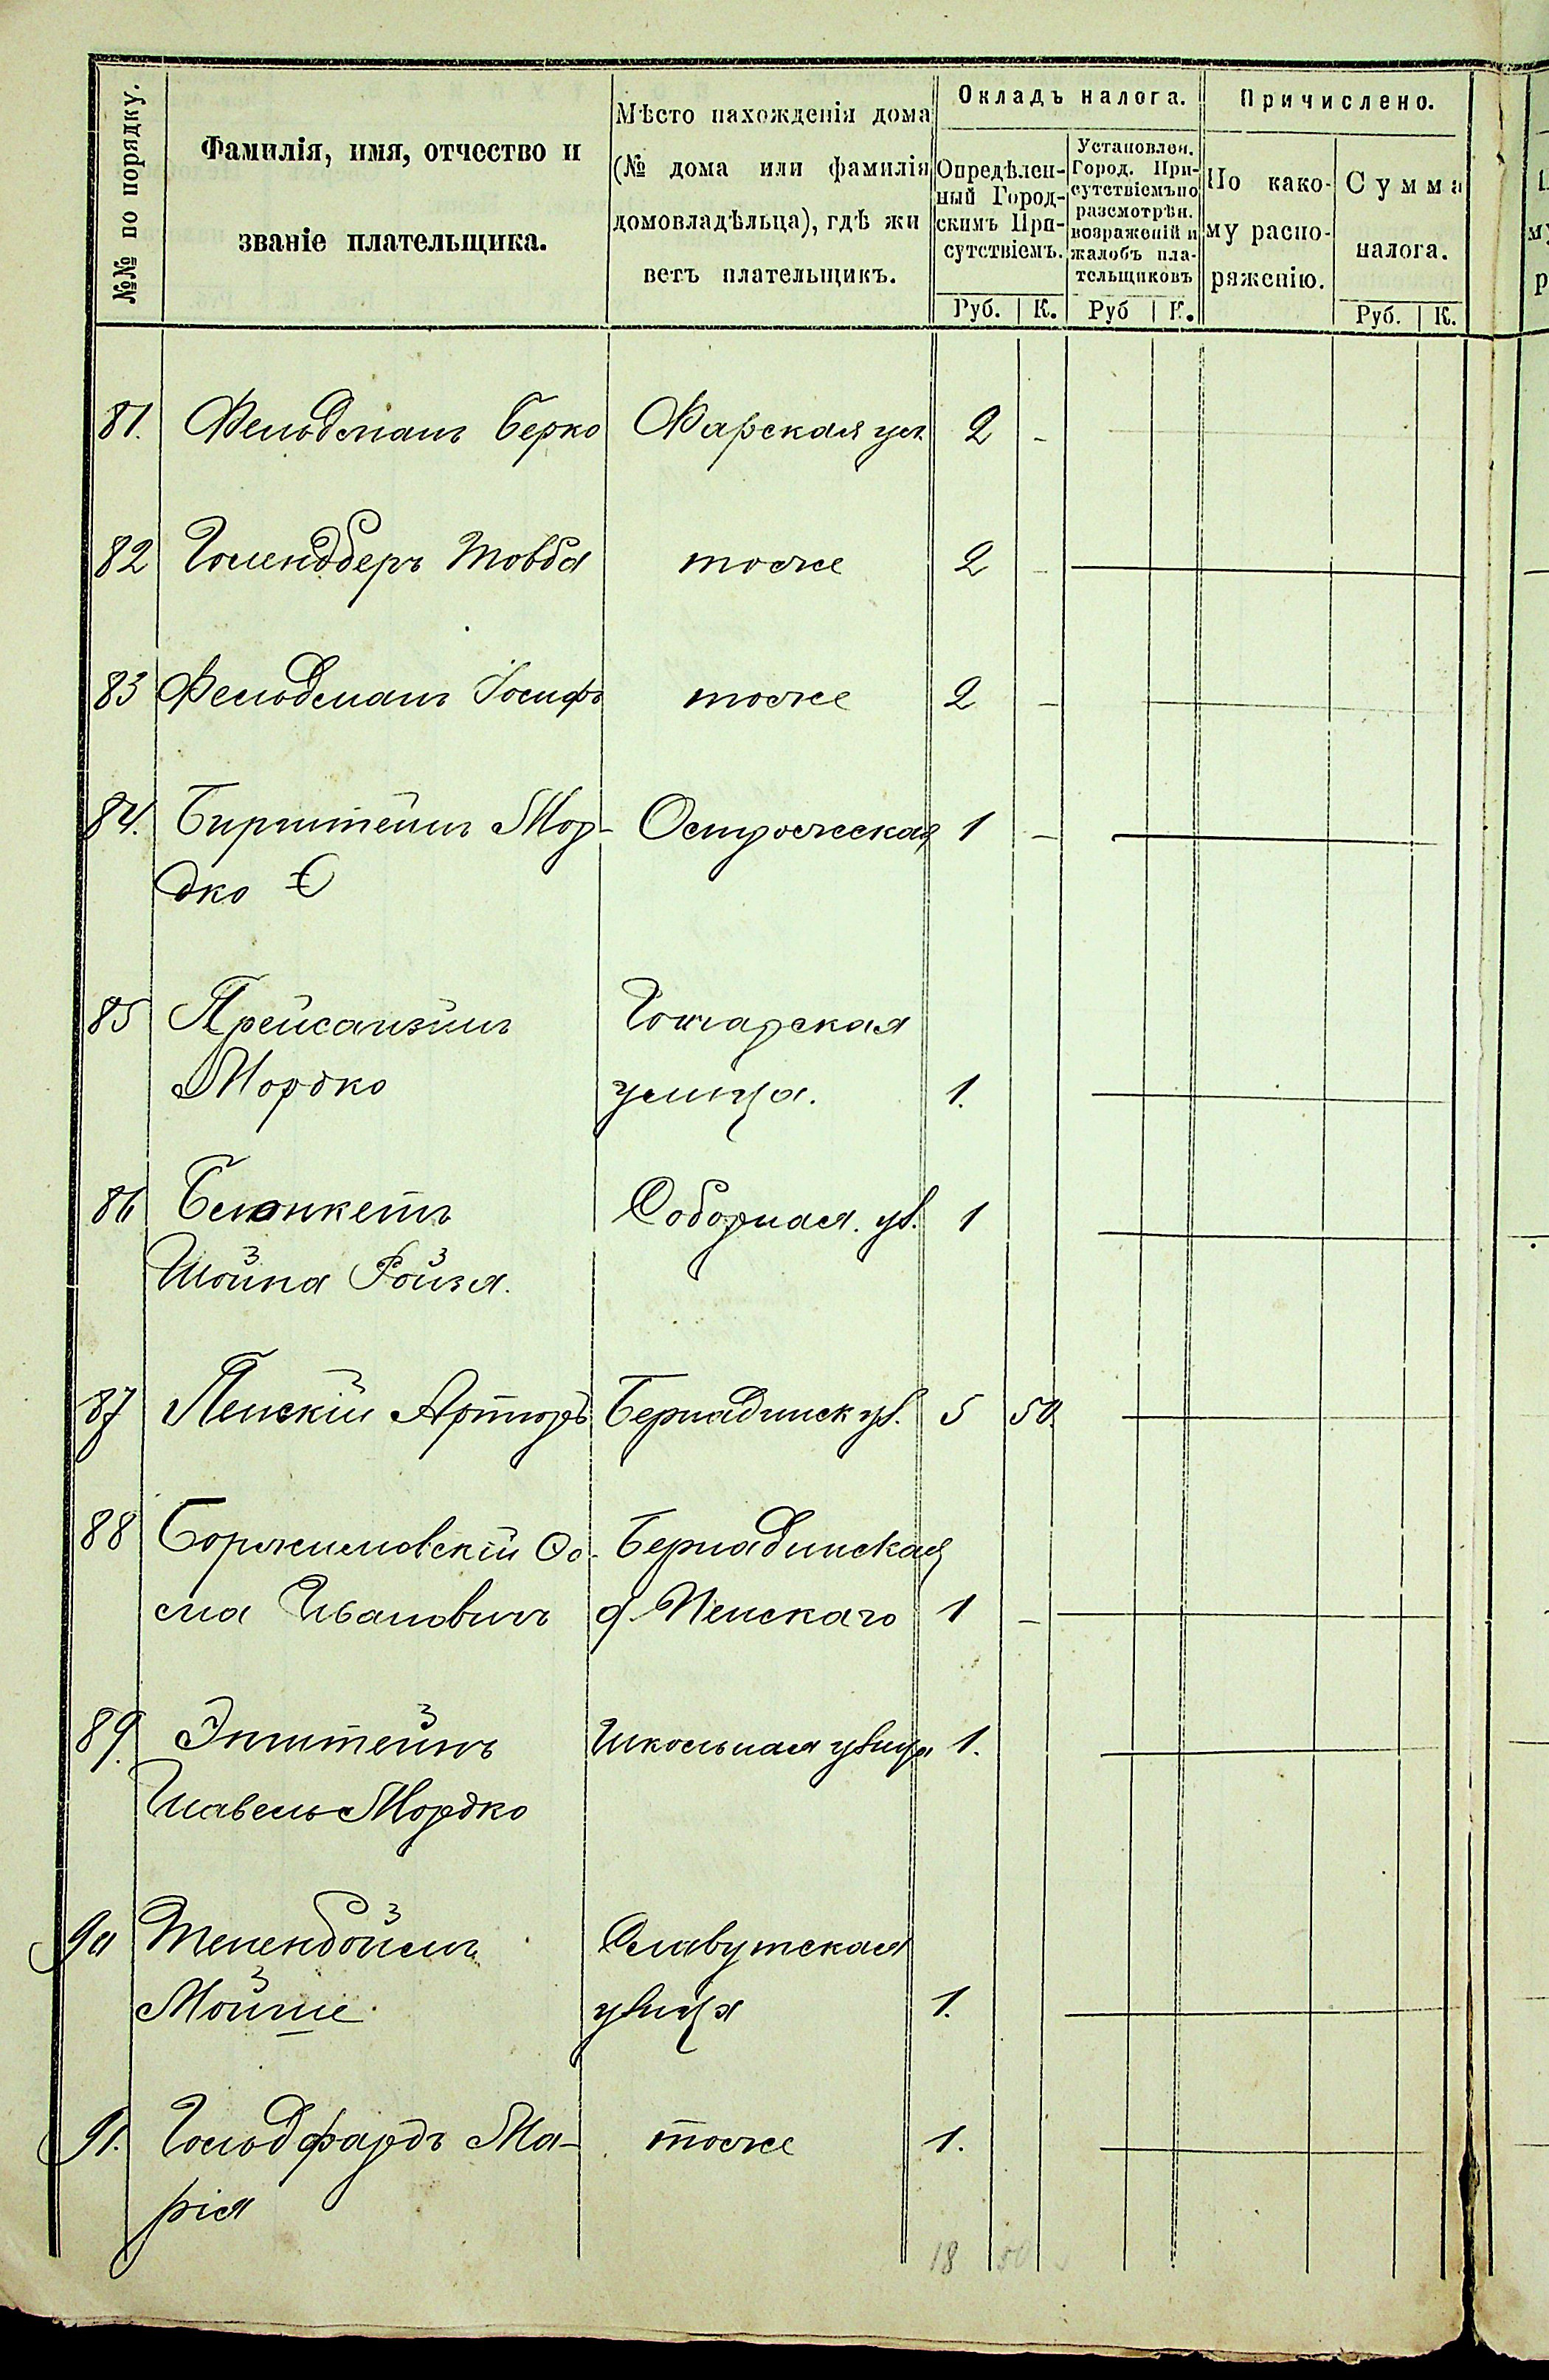 №№ по порядку.
Фамилія, имя, отчество и
званіе плательщика.
Мѣсто нахожденія дома
(№ дома или фамилія
домовладѣльца), гдѣ жи
ветъ плательщикъ.
Окладъ налога.
Опредѣлен-
ный Город-
скимъ При-
сутствіемъ.
Руб. К.
Установлен.
Город. При-
сутствіемъ по
разсмотрѣн.
возраженій и
жалобъ пла-
тельщиковъ
Руб К.
Причислено.
По како-
му распо-
ряженію.
Сумма
налога.
Руб. К.
81. Фельдманъ Берко Фарская ул. 2 -
82 Голендберъ Товба тоже 2 -
83 Фельдманъ Іосифъ тоже 2 -
84. Бирштейнъ Мор- Острожская 1 -
дко
85 Прейсанзинъ Гончарская
Мордко улица. 1.
86 Блюнкетъ Соборная ул. 1
Шойна Ройзя.
87 Пенскій Артюръ Бернадинск ул. 5 50.
88 Боржимовскій Ѳо- Бернадинская
ма Ивановичъ д. Пенскаго 1 -
89. Эпштейнъ Школьная улица 1.
Шавель Мордко
90 Тененбоймъ Славутская
Мойше улица 1.
91. Гольдфардъ Ма- тоже 1.
рія
18 50